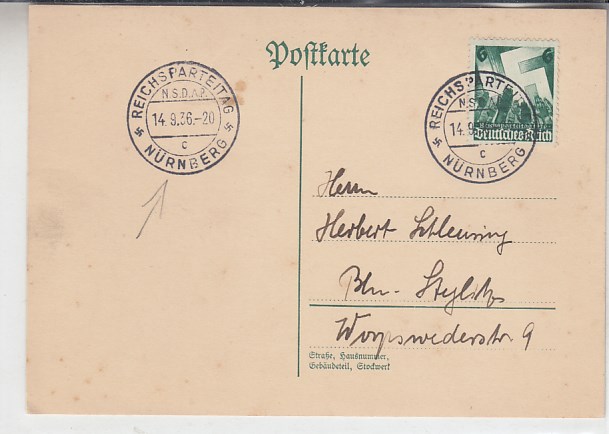 Postkarte
REICHSPARTEITAG
N.S.D.A.P.
14.9.36.-20
c
NÜRNBERG
6 6
REICHSPARTEITAG
N.S.D.A.P.
14.9
c
NÜRNBERG
Deutsches Reich
Herrn
Herbert Schleusing
Bln-Steglitz
Worpswederstr. 9
Straße, Hausnummer,
Gebäudeteil, Stockwerk